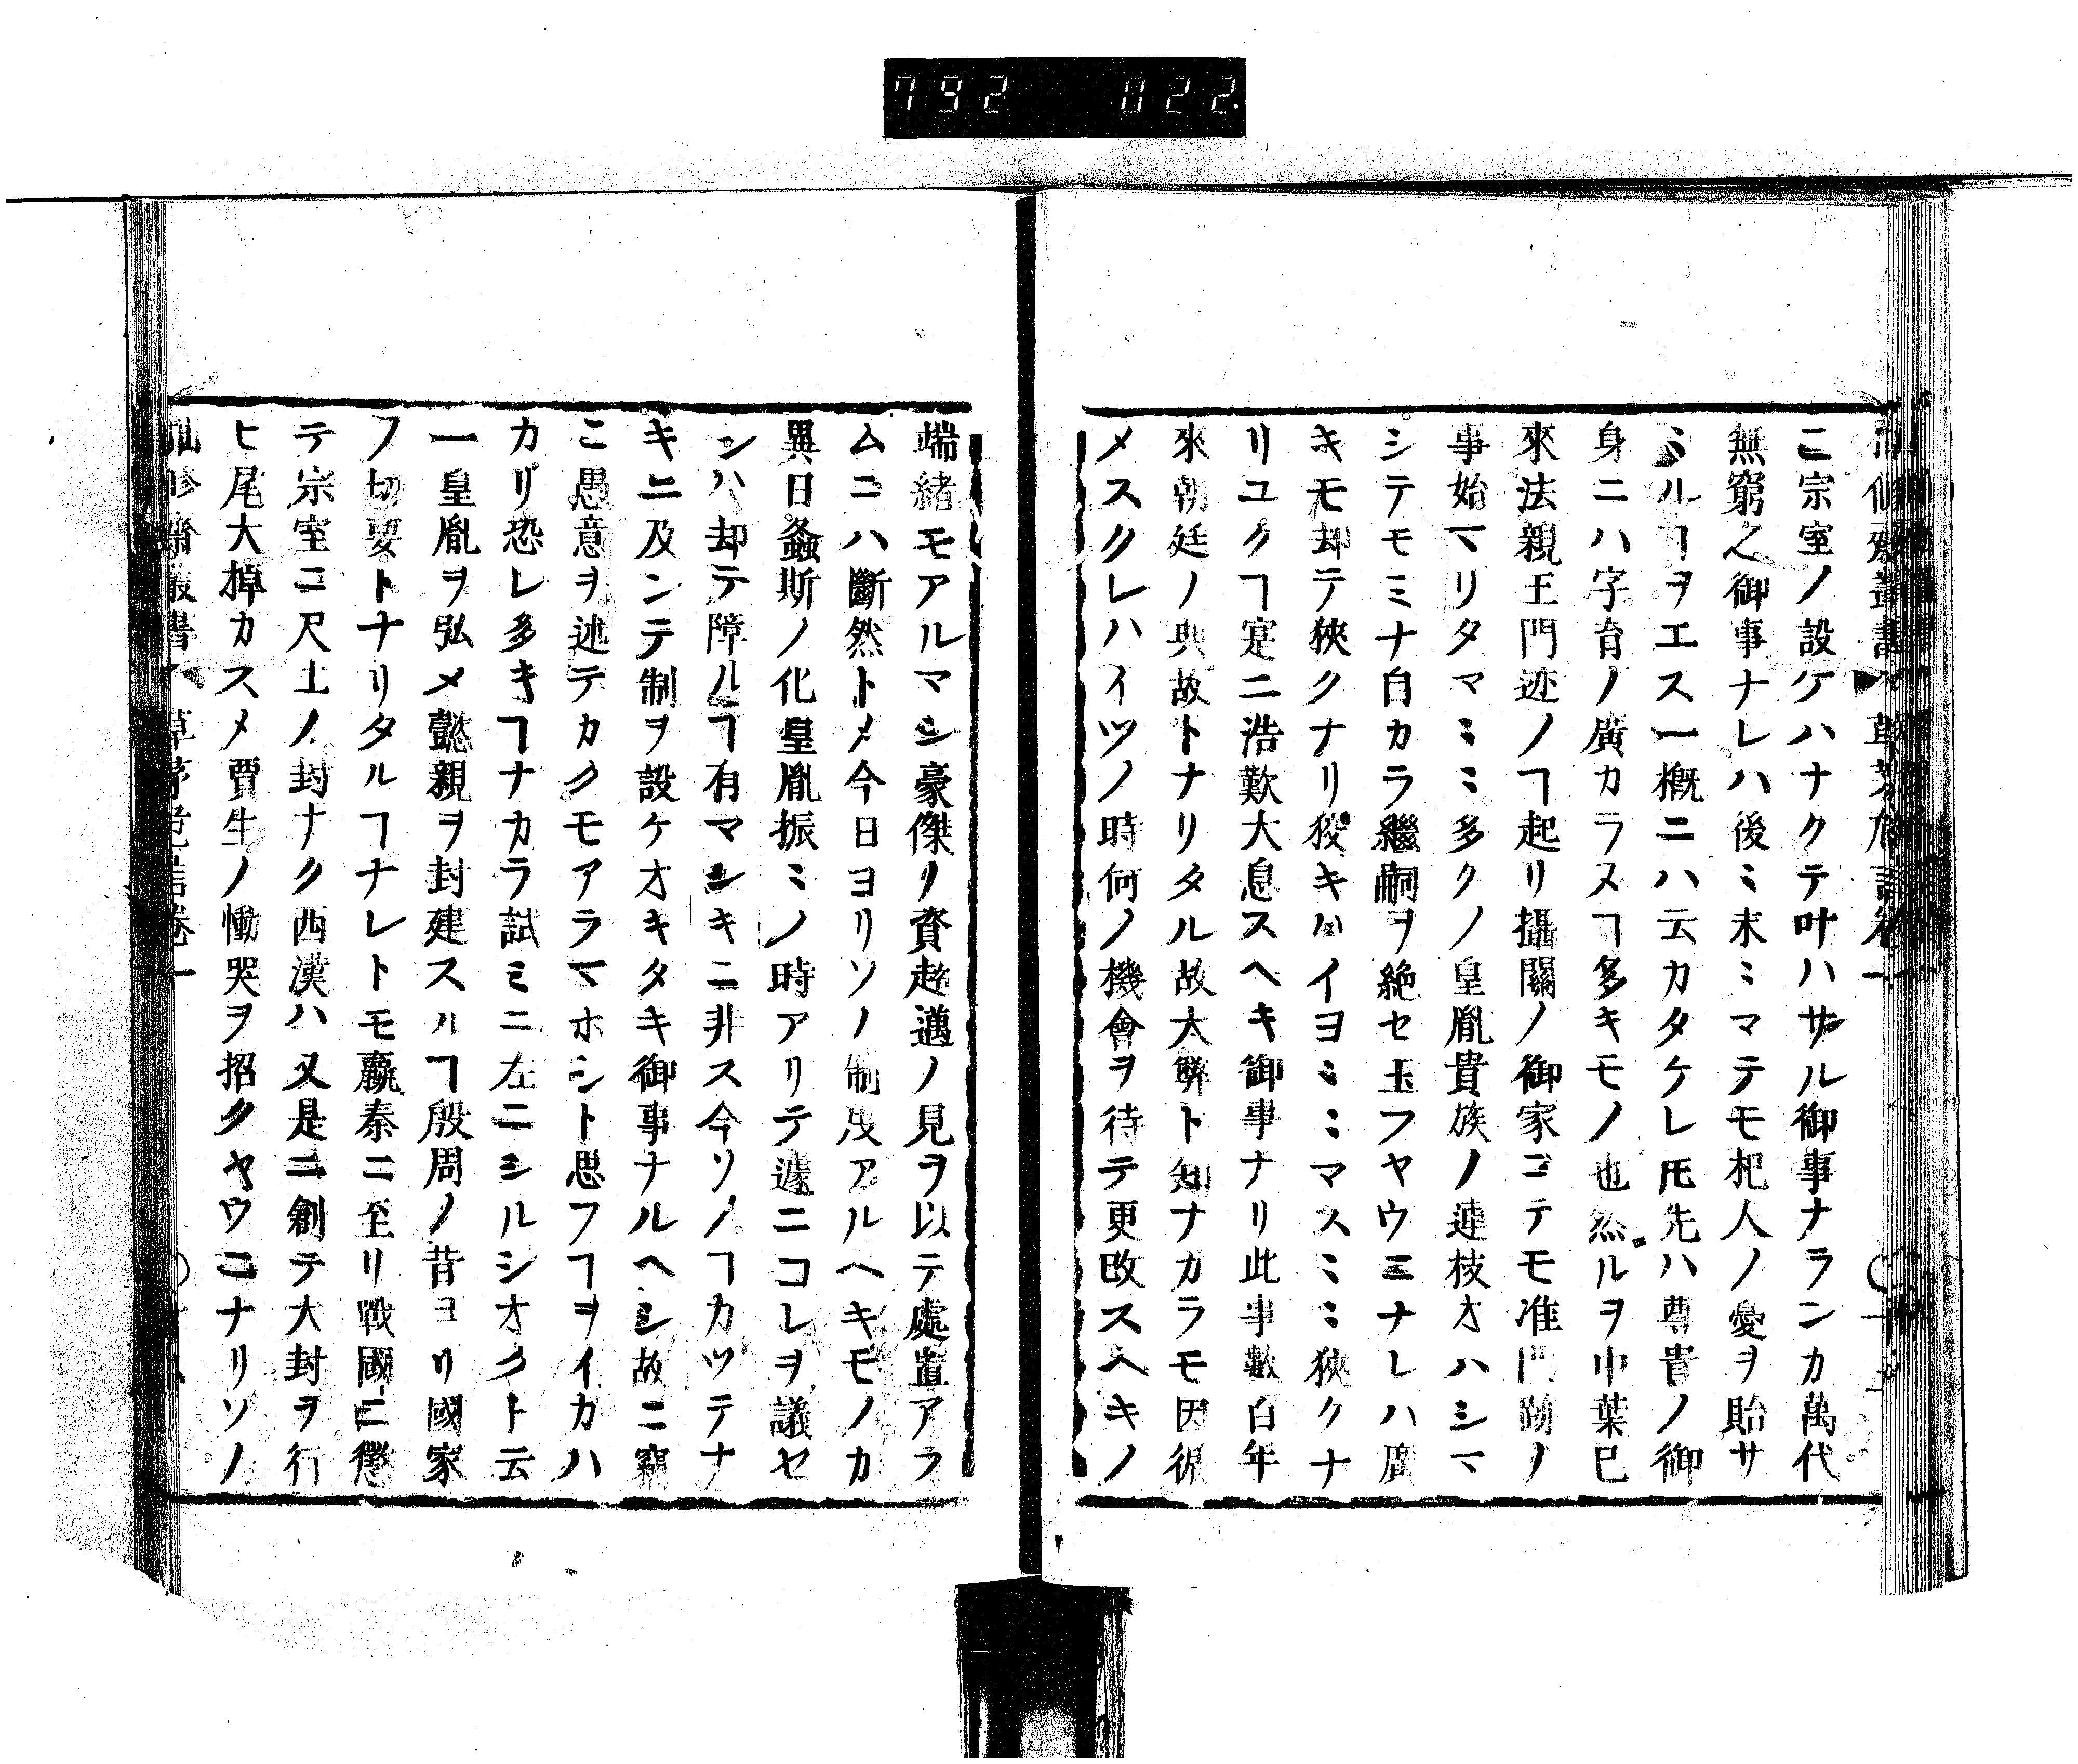 792 022
ニ宗室ノ設ケハナクテ叶ハサル御事ナランカ萬代
無窮之御事ナレハ後ミ末ミマテモ杞人ノ憂ヲ貽サ
ミルヿヲエス一概ニハ云カタケレ𪜈先ハ尊貴ノ御
身ニハ字育ノ廣カラヌヿ多キモノ也然ルヲ中葉已
來法親王門迹ノヿ起リ攝關ノ御家ニテモ准門跡ノ
事始マリタマミミ多クノ皇胤貴族ノ連枝オハシマ
シテモミナ自カラ繼嗣ヲ絶セ玉フヤウニナレハ廣
キモ却テ狹クナリ狹キハイヨミミマスミミ狹クナ
リユクヿ寔ニ浩歎大息スヘキ御事ナリ此事數百年
來朝廷ノ典故トナリタル故大弊ト知ナカラモ因循
メスクレハイツノ時何ノ機會ヲ待テ更改スヘキノ
端緒モアルマシ豪傑ノ資超邁ノ見ヲ以テ處置アラ
ムニハ斷然トメ今日ヨリソノ制度アルヘキモノカ
異日螽斯ノ化皇胤振ミノ時アリテ遽ニコレヲ議セ
ンハ却テ障ルヿ有マシキニ非ス今ソノヿカツテナ
キニ及ンテ制ヲ設ケオキタキ御事ナルヘシ故ニ竊
ニ愚意ヲ述テカクモアラマホシト思フヿヲイカハ
カリ恐レ多キヿナカラ試ミニ左ニシルシオクト云
一皇胤ヲ弘メ懿親ヲ封建スルヿ殷周ノ昔ヨリ國家
ノ切要トナリタルヿナレトモ嬴秦ニ至リ戰國ニ懲
テ宗室ニ尺土ノ封ナク西漢ハ又是ニ創テ大封ヲ行
ヒ尾大掉カスメ賈生ノ慟哭ヲ招クヤウニナリソノ